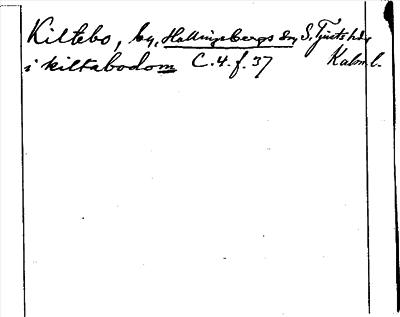 Kiltebo, by, Hallingebergs sn, S. Tjusts hd,
i kiltabodom C. 4. f. 37 Kalm. l.